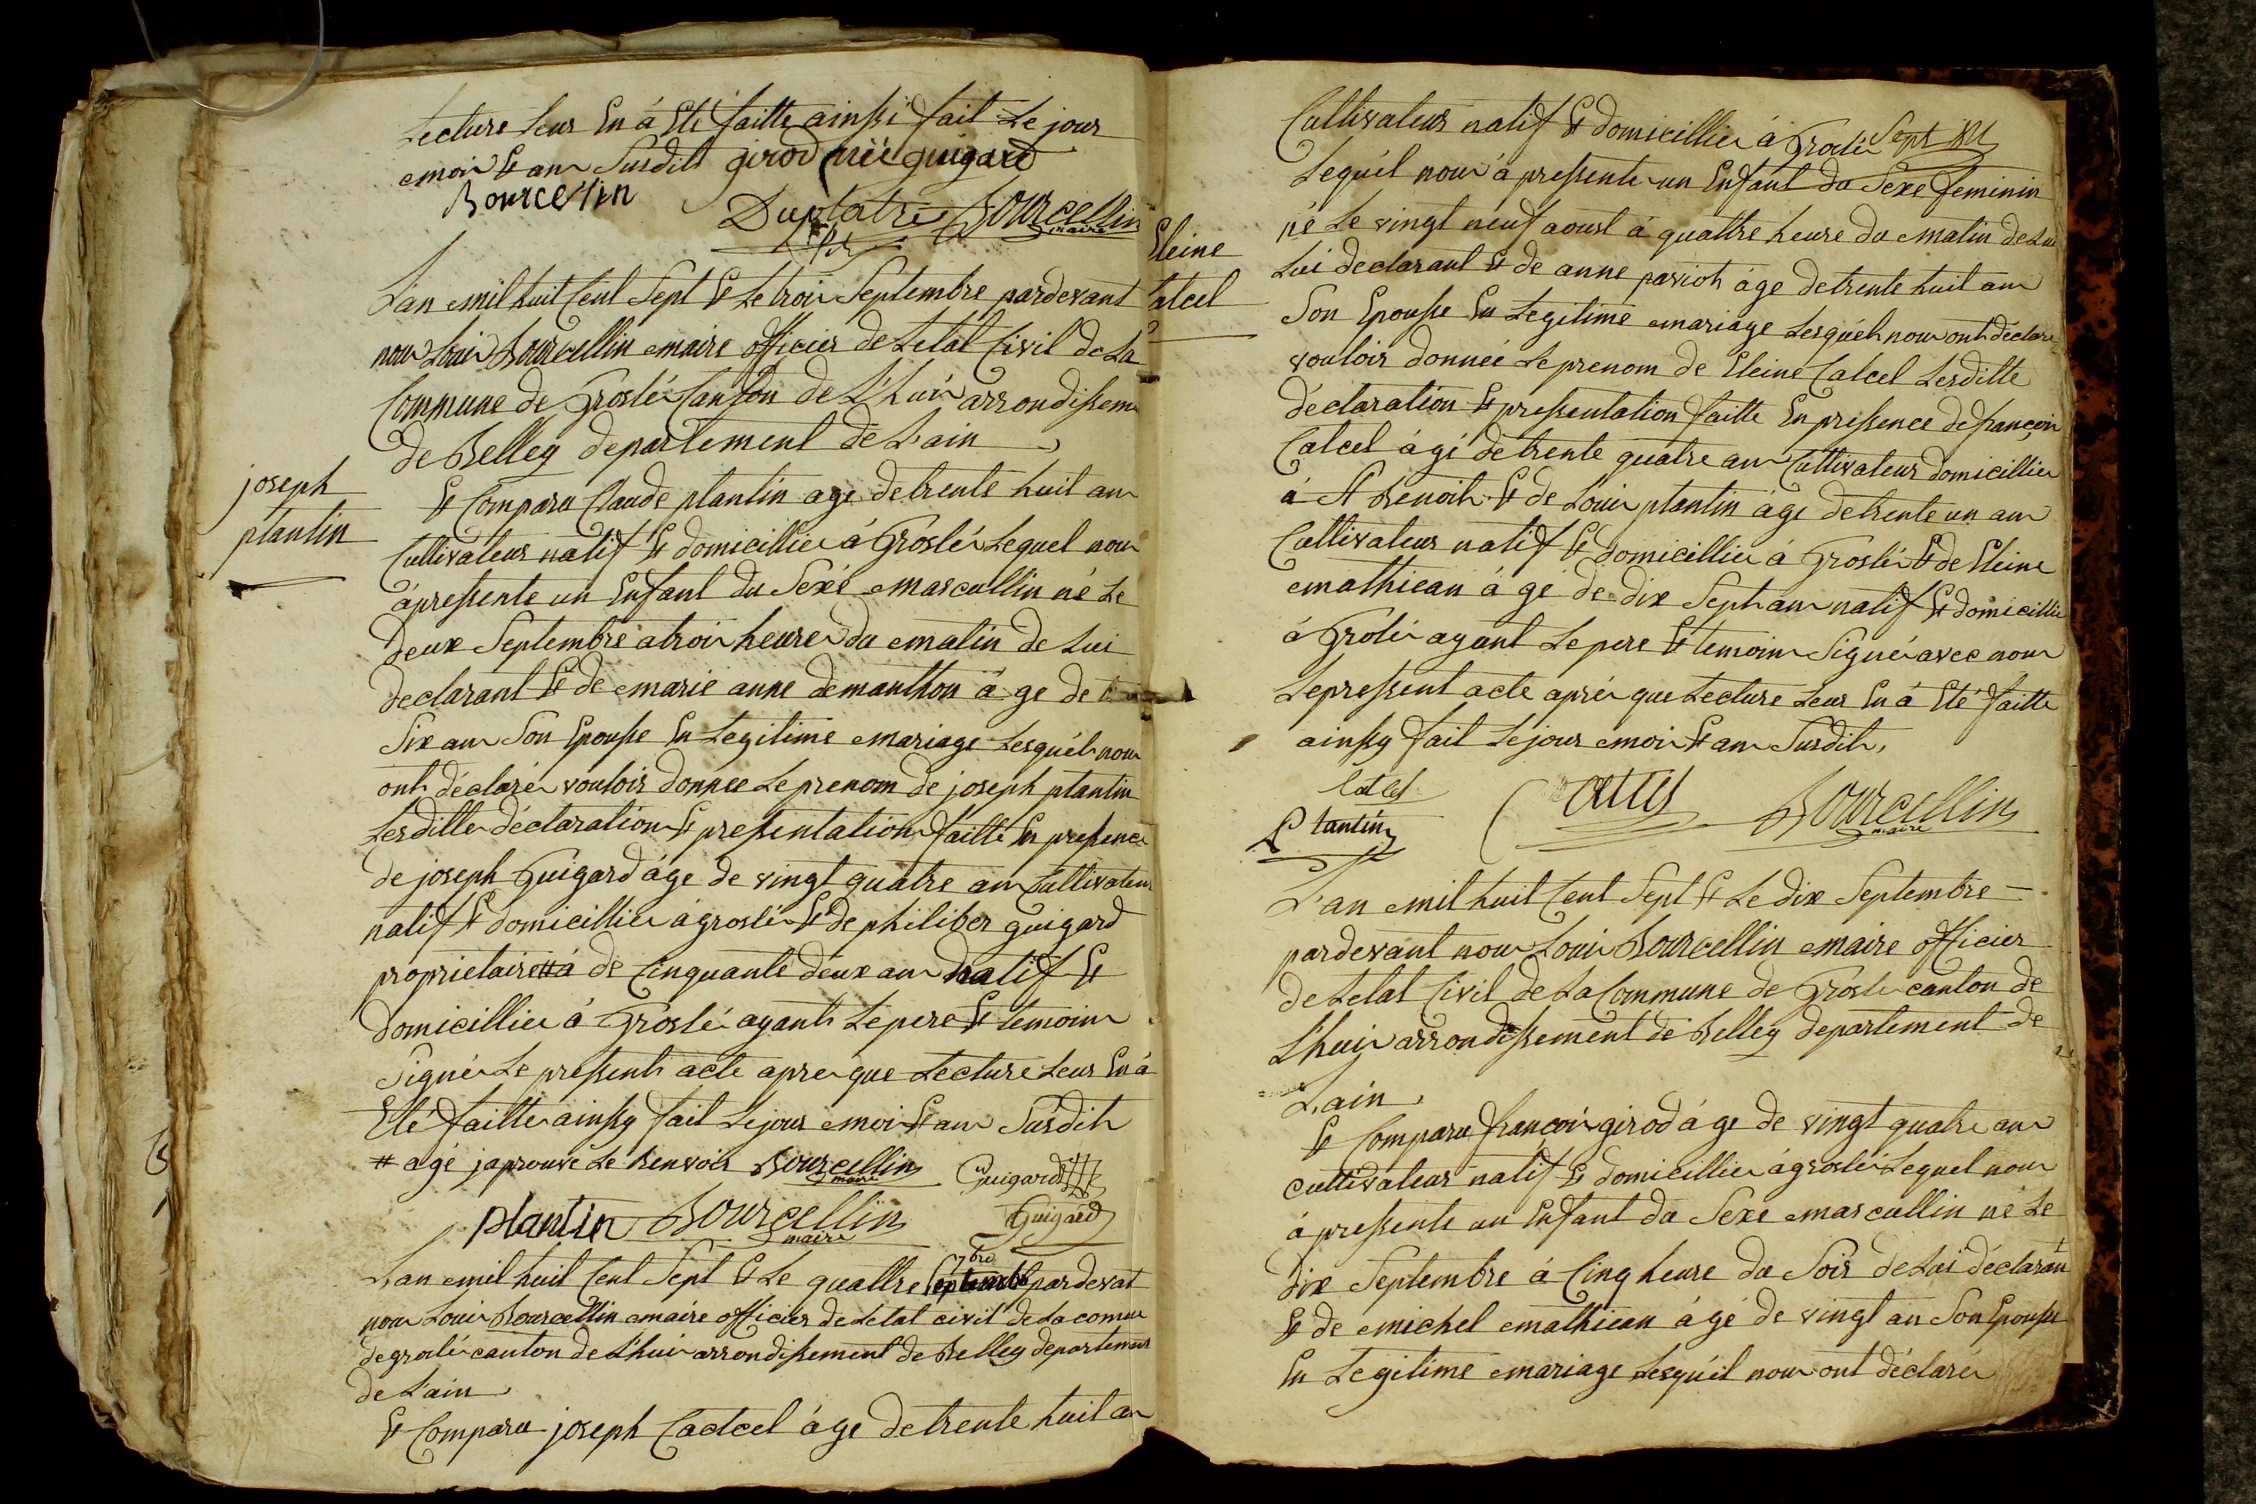 Lecture leur En á Eté faitte ainssi fait Le jour
moi Et an Susdit girod née guigard
Bourcellin
Duplatre Bourcellin
maire
L'an mil huit Cent Sept Et Le troi Septembre pardevant
nou Loui Bourcellin maire officier de Letat Civil de La
Commune de Groslé Canton de L'hui arrondissem
de Belley departement de L'ain
joseph
plantin
Et Comparu Claude plantin agé de trente huit an
Cultivateur natif Et domicillier á Groslé Lequel nou
á pressente un Enfant du Sexé mascullin né Le
deux Septembre a troi heure du matin de Lui
declarant Et de marie anne demanthon á gé de
Six an Son Epousse En Legitime mariage Lesquél nou
ont déclaré vouloir donnee Le prenom de joseph plantin
Lesditte déclaration Et pressentation faitte En pressence
de joseph Guigard ágé de vingt quatre an Cultivateur
natif Et domicillier á groslé Et de philiber guigard
proprietaire # á de Cinquante deux an natif Et
domicillier á Groslé ayant Le pere Et temoin
Signé Le pressent acte apre que Lecture Leur En á
Eté faitte ainssy fait Le jour moi Et an Susdit
# agé japrouve Le Renvoir Bourcellin Guigard
maire
plantin Bourcellin Guigard
maire
L'an mil huit Cent Sept Et Le quattre 7bre pardevat
nou Loui Bourcellin maire officier de Letat civil de La comue
de groslé canton de Lhui arrondissement de Belley departement
de L'ain
Et Comparu joseph Cadcel á gé de trente huit an
Eleine
Catcel
Cultivateur natif Et domicillier á Groslé
Lequél nou á pressente un Enfant du Sexe feminin
né Le vingt neuf aoust á quattre heure du matin de Lui
Lui declarant Et de anne paviot ágé de trente huit an
Son Epousse En Legitime mariage Lesquél nou ont déclaré
vouloir donnée Le prenom de Eleine Catcel Lesditte
déclaration Et pressentation faitte En pressence de françoi
Catcel á gé de trente quatre an Cultivateur domicillier
á St Benoit Et de Loui plantin ágé de trente un an
Cultivateur natif Et domicillier á Groslé Et de Eleine
mathiean á gé de dix Sept an natif Et domicillie
á Grolé ayant Le pere Et temoin Signé avec nou
Le pressent acte apré que Lecture Leur En á Eté faitte
ainssy fait Le jour moi Et an Susdit,
Catcel
Plantin Bourcellin
maire
L'an mil huit Cent Sept Et Le dix Septembre
pardevant nou Loui Bourcellin maire officier
de Letat Civil de La Commune de Groslé canton de
L'hui arrondissement de Belley departement de
L'ain,
Et Comparu françoi girod á gé de vingt quatre an
cultivateur natif Et domicillier á groslé Lequel nou
á pressente un Enfant du Sexe mascullin né Le
dix Septembre á Cinq heure du Soir de Lui déclarant
Et de michel mathiean á gé de vingt an Son Epousse
En Legitime mariage Lesquél nou ont déclaré